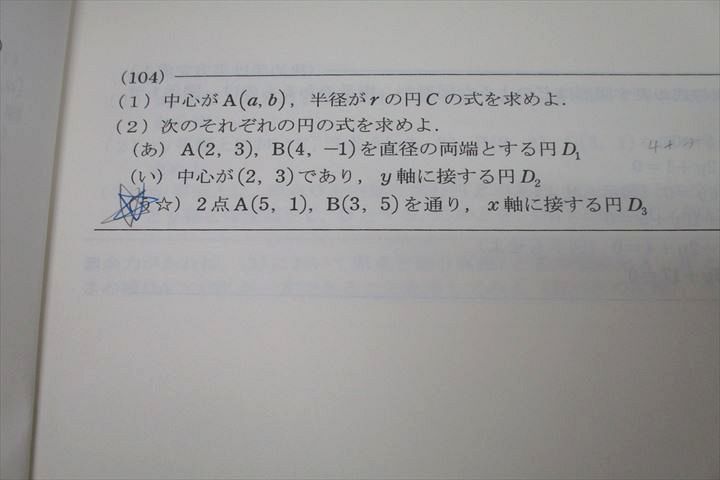 (104)
(1) 中心が A(a, b), 半径が r の円 C の式を求めよ.
(2) 次のそれぞれの円の式を求めよ.
(あ) A(2, 3), B(4, −1) を直径の両端とする円 D₁
(い) 中心が (2, 3) であり, y 軸に接する円 D₂
☆) 2点 A(5, 1), B(3, 5) を通り, x 軸に接する円 D₃